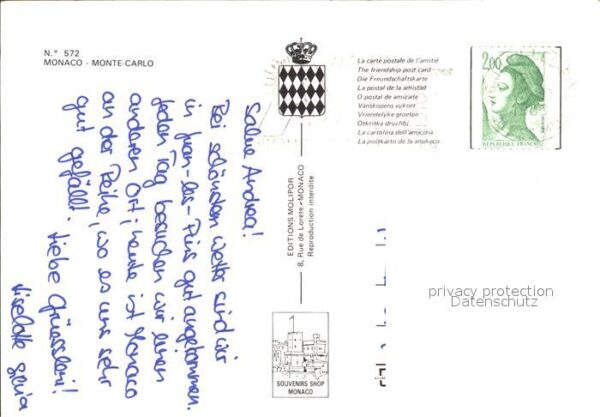 N.° 572
MONACO - MONTE-CARLO
La carte postale de l'amitié
The friendship post card
Die Freundschaftskarte
La postal de la amistad
O postal de amizade
Vänskapens vykort
Vriendelijke groeten
Otkritka druchbi
La cartolina dell'amicizia
La poŝtkarto de la amikeco
2,00
REPUBLIQUE FRANÇAISE
EDITIONS MOLIPOR
8, Rue de Lorete - MONACO
Reproduction interdite
SOUVENIRS SHOP
MONACO
Salue Andrea!
Bei schönsten Wetter sind wir
in Juan-les-Pins gut angekommen.
Jeden Tag besuchen wir einen
anderen Ort; heute ist Monaco
an der Reihe, wo es uns sehr
gut gefällt. Liebe Grüessli!
Liselotte
privacy protection
Datenschutz